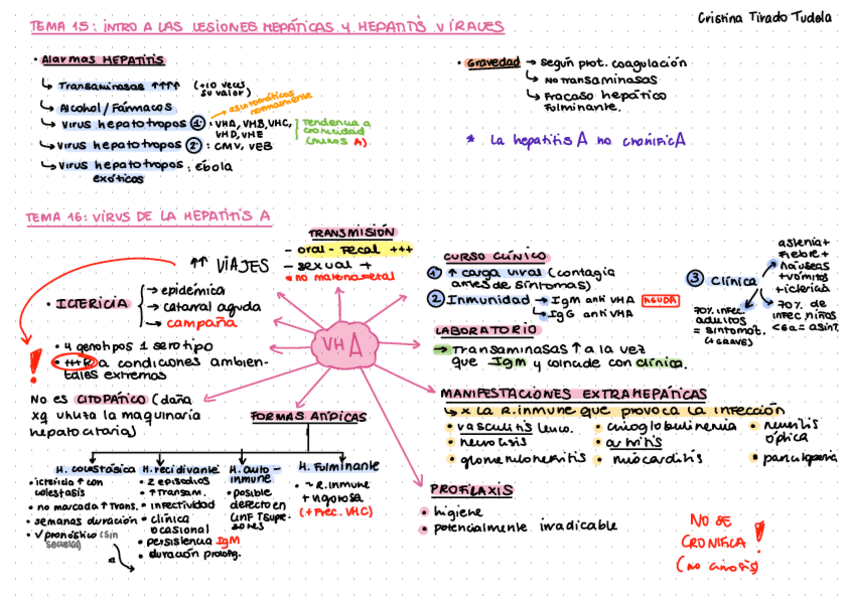 Cristina Tirado Tudela
TEMA 15: INTRO A LAS LESIONES HEPÁTICAS Y HEPATITIS VIRALES
• Alarmas HEPATITIS
↳ Transaminasas ↑↑↑↑ (+10 veces
su valor)
↳ Alcohol / Fármacos
asintomáticas
normalmente
↳ Virus hepatotropos 1º: VHA, VHB, VHC,
VHD, VHE
Tendencia a
cronicidad
(menos A)
↳ Virus hepatotropos 2º: CMV, VEB
↳ Virus hepatotropos : ébola
exóticos
• Gravedad → Según prot. coagulación
↳ No transaminasas
↳ Fracaso hepático
Fulminante.
* La hepatitis A no cronificA
TEMA 16: VIRUS DE LA HEPATITIS A
VHA
TRANSMISIÓN
- oral - fecal +++
- sexual +
• no maternofetal
↑↑ VIAJES
• ICTERICIA → epidémica
→ catarral aguda
→ campaña
• 4 genotipos 1 serotipo
• +++R a condiciones ambien-
tales extremos
!
No es CITOPÁTICO (daña
xq utiliza la maquinaria
hepatocitaria)
CURSO CLÍNICO
1 ↑ carga viral (contagia
antes de síntomas)
2 Inmunidad → IgM anti VHA AGUDA
↳ IgG anti VHA
3 Clínica
astenia+
fiebre+
náuseas
+vómitos
+ictericia
70% infec.
adultos
= sintomát.
(+graves)
70% de
infec niños
<6a = asint.
LABORATORIO
→ Transaminasas ↑ a la vez
que IgM y coincide con clínica.
MANIFESTACIONES EXTRAHEPÁTICAS
↳ x la R.inmune que provoca la infección
• vasculitis leuco. • crioglobulinemia • neuritis
óptica
• artritis
• glomerulonefritis • miocarditis
PROFILAXIS
• higiene
• potencialmente erradicable
NO SE
CRONIFICA !
(no cirrosis)
FORMAS ATÍPICAS
H. colestásica
• ictericia ↑ con
colestasis
• no marcada ↑ Trans.
• semanas duración
• √ pronóstico (sin
secuelas)
H. recidivante
• 2 episodios
• ↑ Transam.
• infectividad
• clínica
ocasional
• persistencia IgM
• duración prolong.
H. auto-
inmune
• posible
defecto en
LINF T supre-
sores
H. Fulminante
• ~ R.inmune
+ vigorosa
(+ frec. VHC)